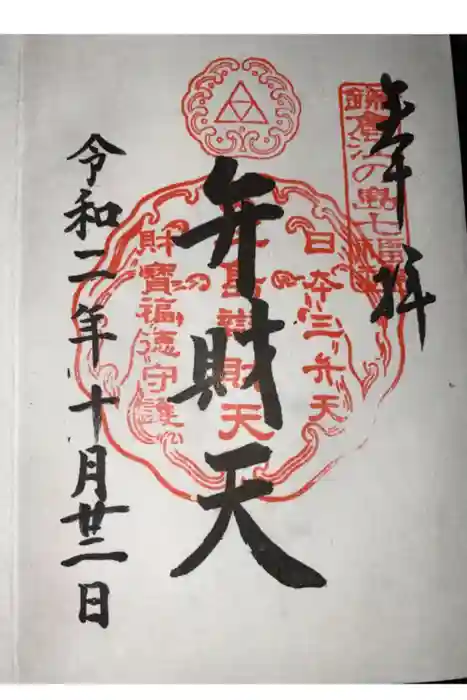 奉拝
鎌倉江の島七福神
日本三弁天
弁財天
江島辨財天
財寶福徳守護
令和二年十月廿二日